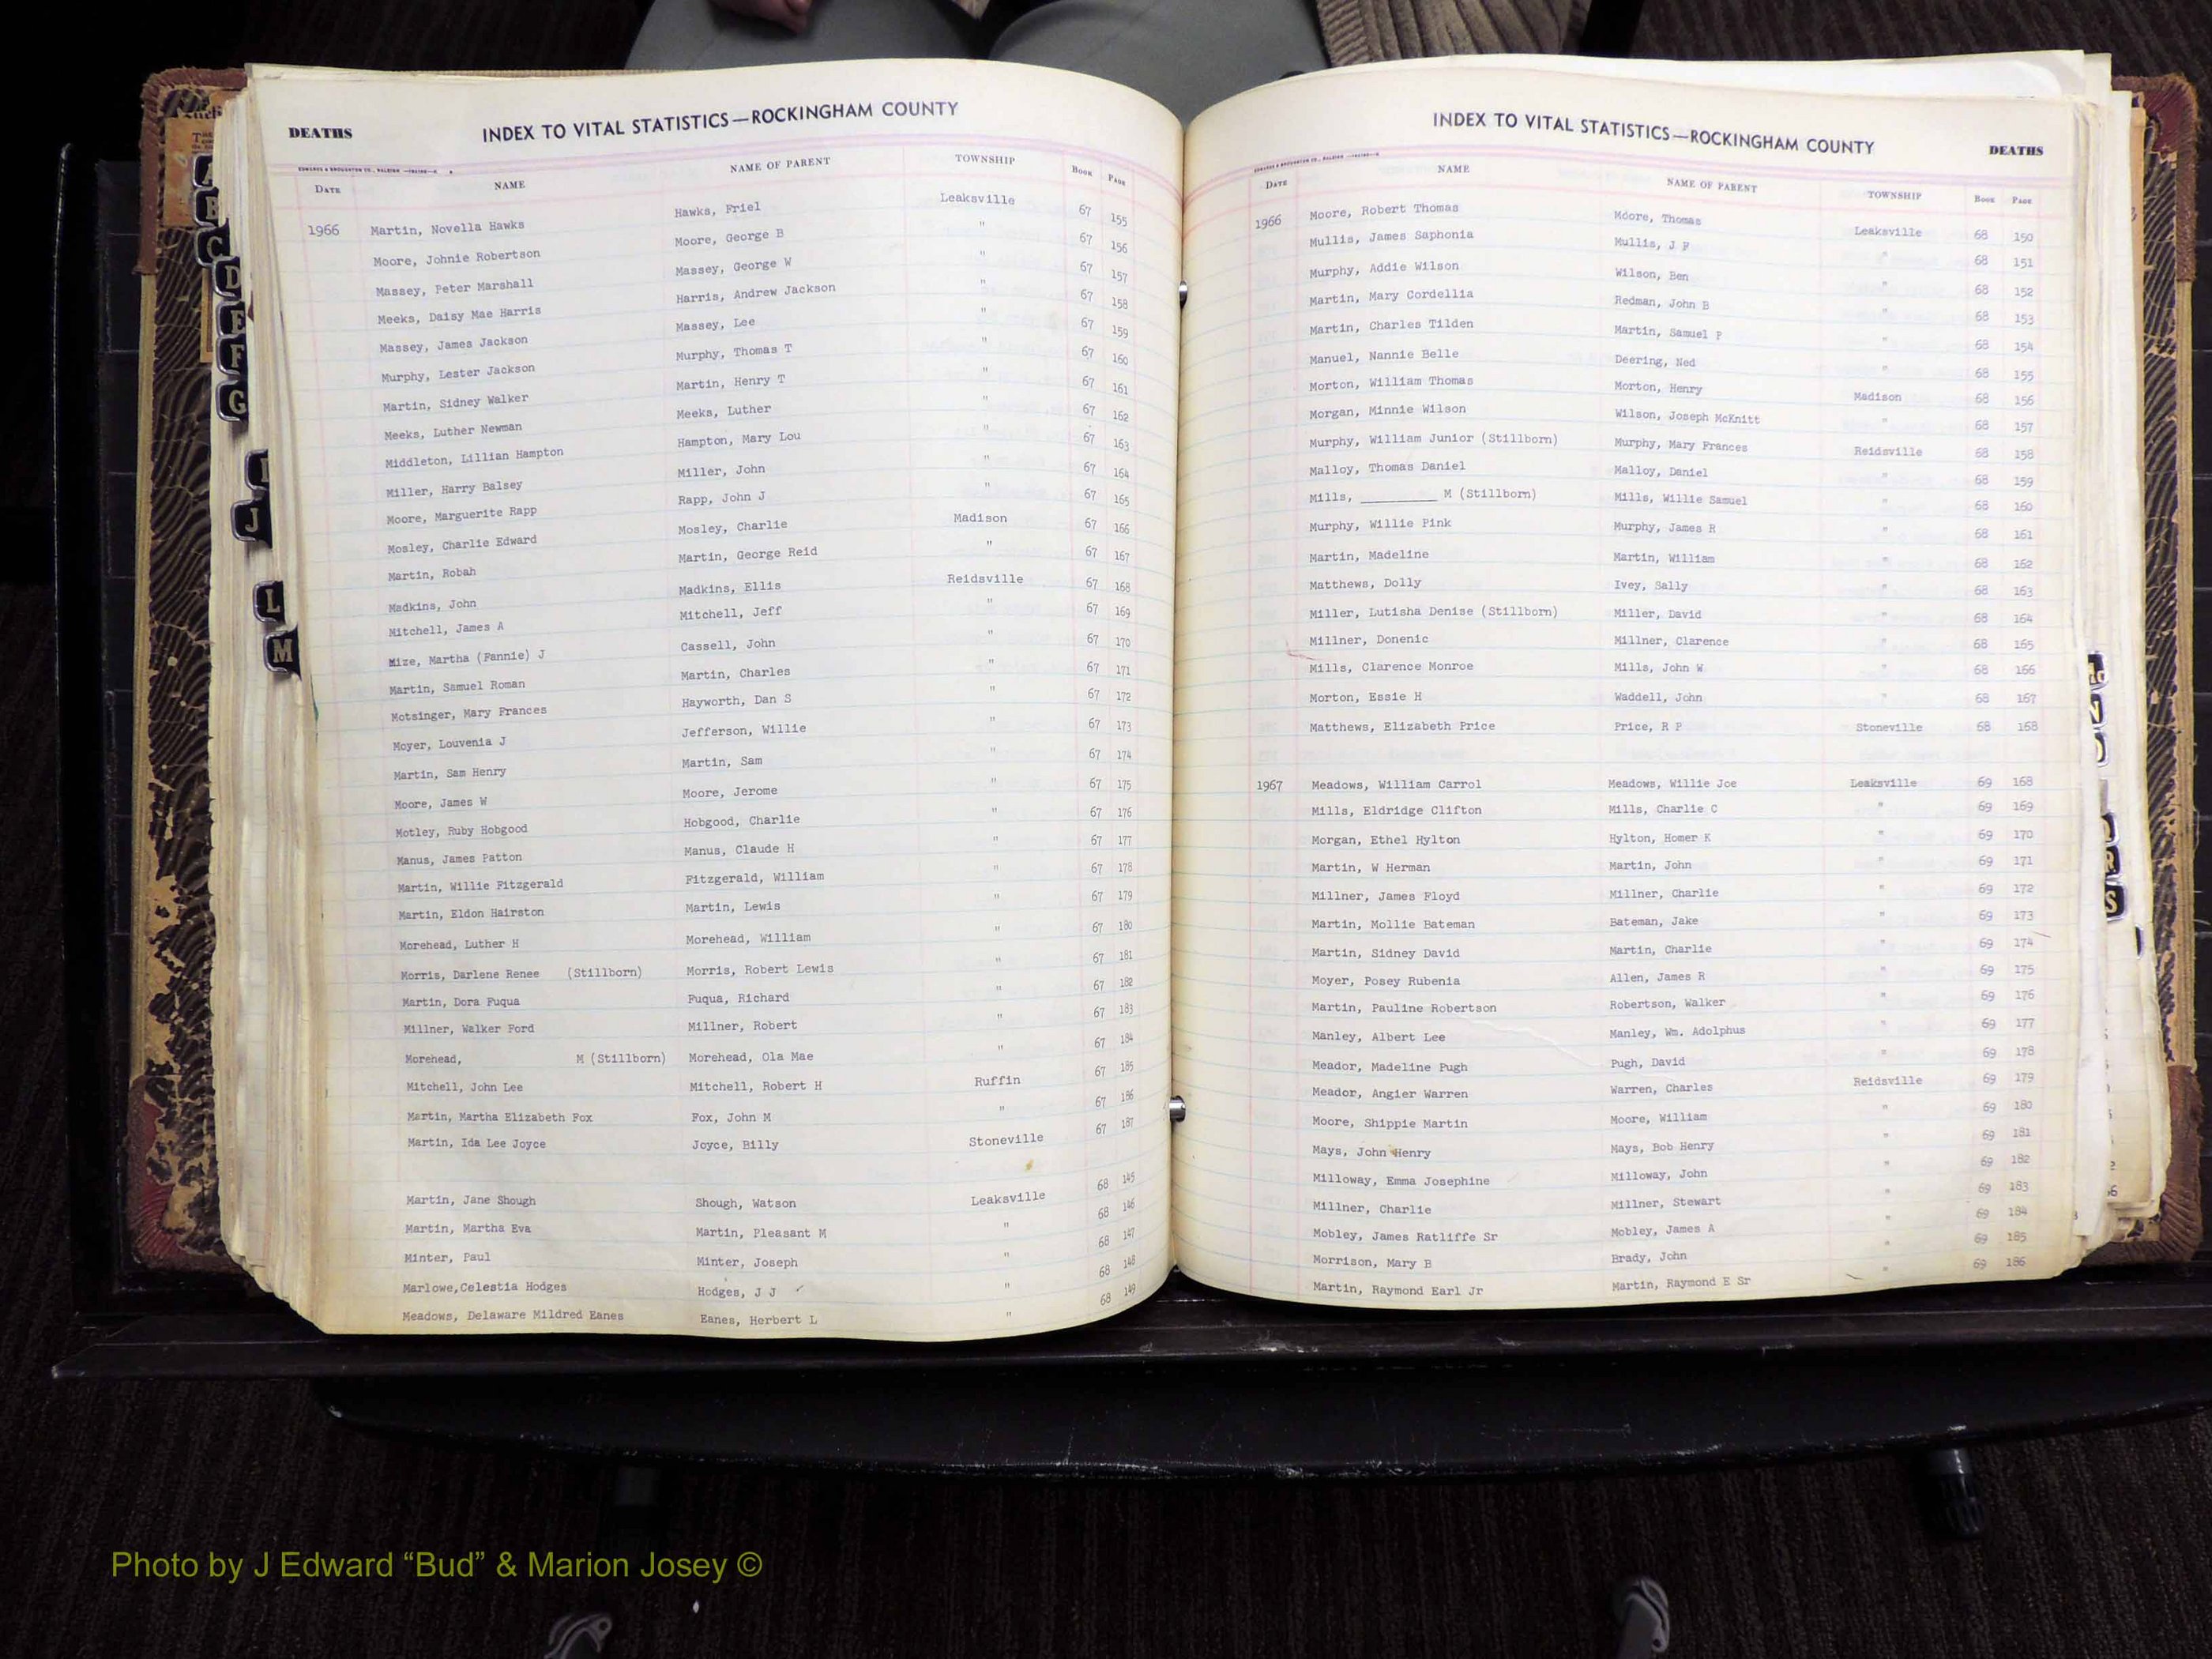 DEATHS
INDEX TO VITAL STATISTICS—ROCKINGHAM COUNTY
DATE NAME NAME OF PARENT TOWNSHIP BOOK PAGE
1966 Martin, Novella Hawks Hawks, Friel Leaksville 67 155
Moore, Johnie Robertson Moore, George B " 67 156
Massey, Peter Marshall Massey, George W " 67 157
Meeks, Daisy Mae Harris Harris, Andrew Jackson " 67 158
Massey, James Jackson Massey, Lee " 67 159
Murphy, Lester Jackson Murphy, Thomas T " 67 160
Martin, Sidney Walker Martin, Henry T " 67 161
Meeks, Luther Newman Meeks, Luther " 67 162
Middleton, Lillian Hampton Hampton, Mary Lou " 67 163
Miller, Harry Balsey Miller, John " 67 164
Moore, Marguerite Rapp Rapp, John J " 67 165
Mosley, Charlie Edward Mosley, Charlie Madison 67 166
Martin, Robah Martin, George Reid " 67 167
Madkins, John Madkins, Ellis Reidsville 67 168
Mitchell, James A Mitchell, Jeff " 67 169
Mize, Martha (Fannie) J Cassell, John " 67 170
Martin, Samuel Roman Martin, Charles " 67 171
Motsinger, Mary Frances Hayworth, Dan S " 67 172
Moyer, Louvenia J Jefferson, Willie " 67 173
Martin, Sam Henry Martin, Sam " 67 174
Moore, James W Moore, Jerome " 67 175
Motley, Ruby Hobgood Hobgood, Charlie " 67 176
Manus, James Patton Manus, Claude H " 67 177
Martin, Willie Fitzgerald Fitzgerald, William " 67 178
Martin, Eldon Hairston Martin, Lewis " 67 179
Morehead, Luther H Morehead, William " 67 180
Morris, Darlene Renee (Stillborn) Morris, Robert Lewis " 67 181
Martin, Dora Fuqua Fuqua, Richard " 67 182
Millner, Walker Ford Millner, Robert " 67 183
Morehead, M (Stillborn) Morehead, Ola Mae " 67 184
Mitchell, John Lee Mitchell, Robert H Ruffin 67 185
Martin, Martha Elizabeth Fox Fox, John M " 67 186
Martin, Ida Lee Joyce Joyce, Billy Stoneville 67 187
Martin, Jane Shough Shough, Watson Leaksville 68 145
Martin, Martha Eva Martin, Pleasant M " 68 146
Minter, Paul Minter, Joseph " 68 147
Marlowe,Celestia Hodges Hodges, J J " 68 148
Meadows, Delaware Mildred Eanes Eanes, Herbert L " 68 149
INDEX TO VITAL STATISTICS—ROCKINGHAM COUNTY
DEATHS
DATE NAME NAME OF PARENT TOWNSHIP BOOK PAGE
1966 Moore, Robert Thomas Moore, Thomas Leaksville 68 150
Mullis, James Saphonia Mullis, J F " 68 151
Murphy, Addie Wilson Wilson, Ben " 68 152
Martin, Mary Cordellia Redman, John B " 68 153
Martin, Charles Tilden Martin, Samuel P " 68 154
Manuel, Nannie Belle Deering, Ned " 68 155
Morton, William Thomas Morton, Henry Madison 68 156
Morgan, Minnie Wilson Wilson, Joseph McKnitt " 68 157
Murphy, William Junior (Stillborn) Murphy, Mary Frances Reidsville 68 158
Malloy, Thomas Daniel Malloy, Daniel " 68 159
Mills, __________ M (Stillborn) Mills, Willie Samuel " 68 160
Murphy, Willie Pink Murphy, James R " 68 161
Martin, Madeline Martin, William " 68 162
Matthews, Dolly Ivey, Sally " 68 163
Miller, Lutisha Denise (Stillborn) Miller, David " 68 164
Millner, Donenic Millner, Clarence " 68 165
Mills, Clarence Monroe Mills, John W " 68 166
Morton, Essie H Waddell, John " 68 167
Matthews, Elizabeth Price Price, R P Stoneville 68 168
1967 Meadows, William Carrol Meadows, Willie Joe Leaksville 69 168
Mills, Eldridge Clifton Mills, Charlie C " 69 169
Morgan, Ethel Hylton Hylton, Homer K " 69 170
Martin, W Herman Martin, John " 69 171
Millner, James Floyd Millner, Charlie " 69 172
Martin, Mollie Bateman Bateman, Jake " 69 173
Martin, Sidney David Martin, Charlie " 69 174
Moyer, Posey Rubenia Allen, James R " 69 175
Martin, Pauline Robertson Robertson, Walker " 69 176
Manley, Albert Lee Manley, Wm. Adolphus " 69 177
Meador, Madeline Pugh Pugh, David " 69 178
Meador, Angier Warren Warren, Charles Reidsville 69 179
Moore, Shippie Martin Moore, William " 69 180
Mays, John Henry Mays, Bob Henry " 69 181
Milloway, Emma Josephine Milloway, John " 69 182
Millner, Charlie Millner, Stewart " 69 183
Mobley, James Ratliffe Sr Mobley, James A " 69 184
Morrison, Mary B Brady, John " 69 185
Martin, Raymond Earl Jr Martin, Raymond E Sr " 69 186
A
B
C
D
E
F
G
J
L
M
N
R
S
Photo by J Edward “Bud” & Marion Josey ©